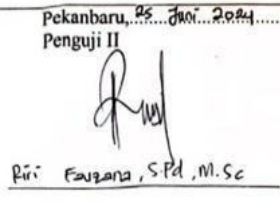 Pekanbaru, 25 Juni 2024
Penguji II
Riri Fauzana, S.Pd, M.Sc